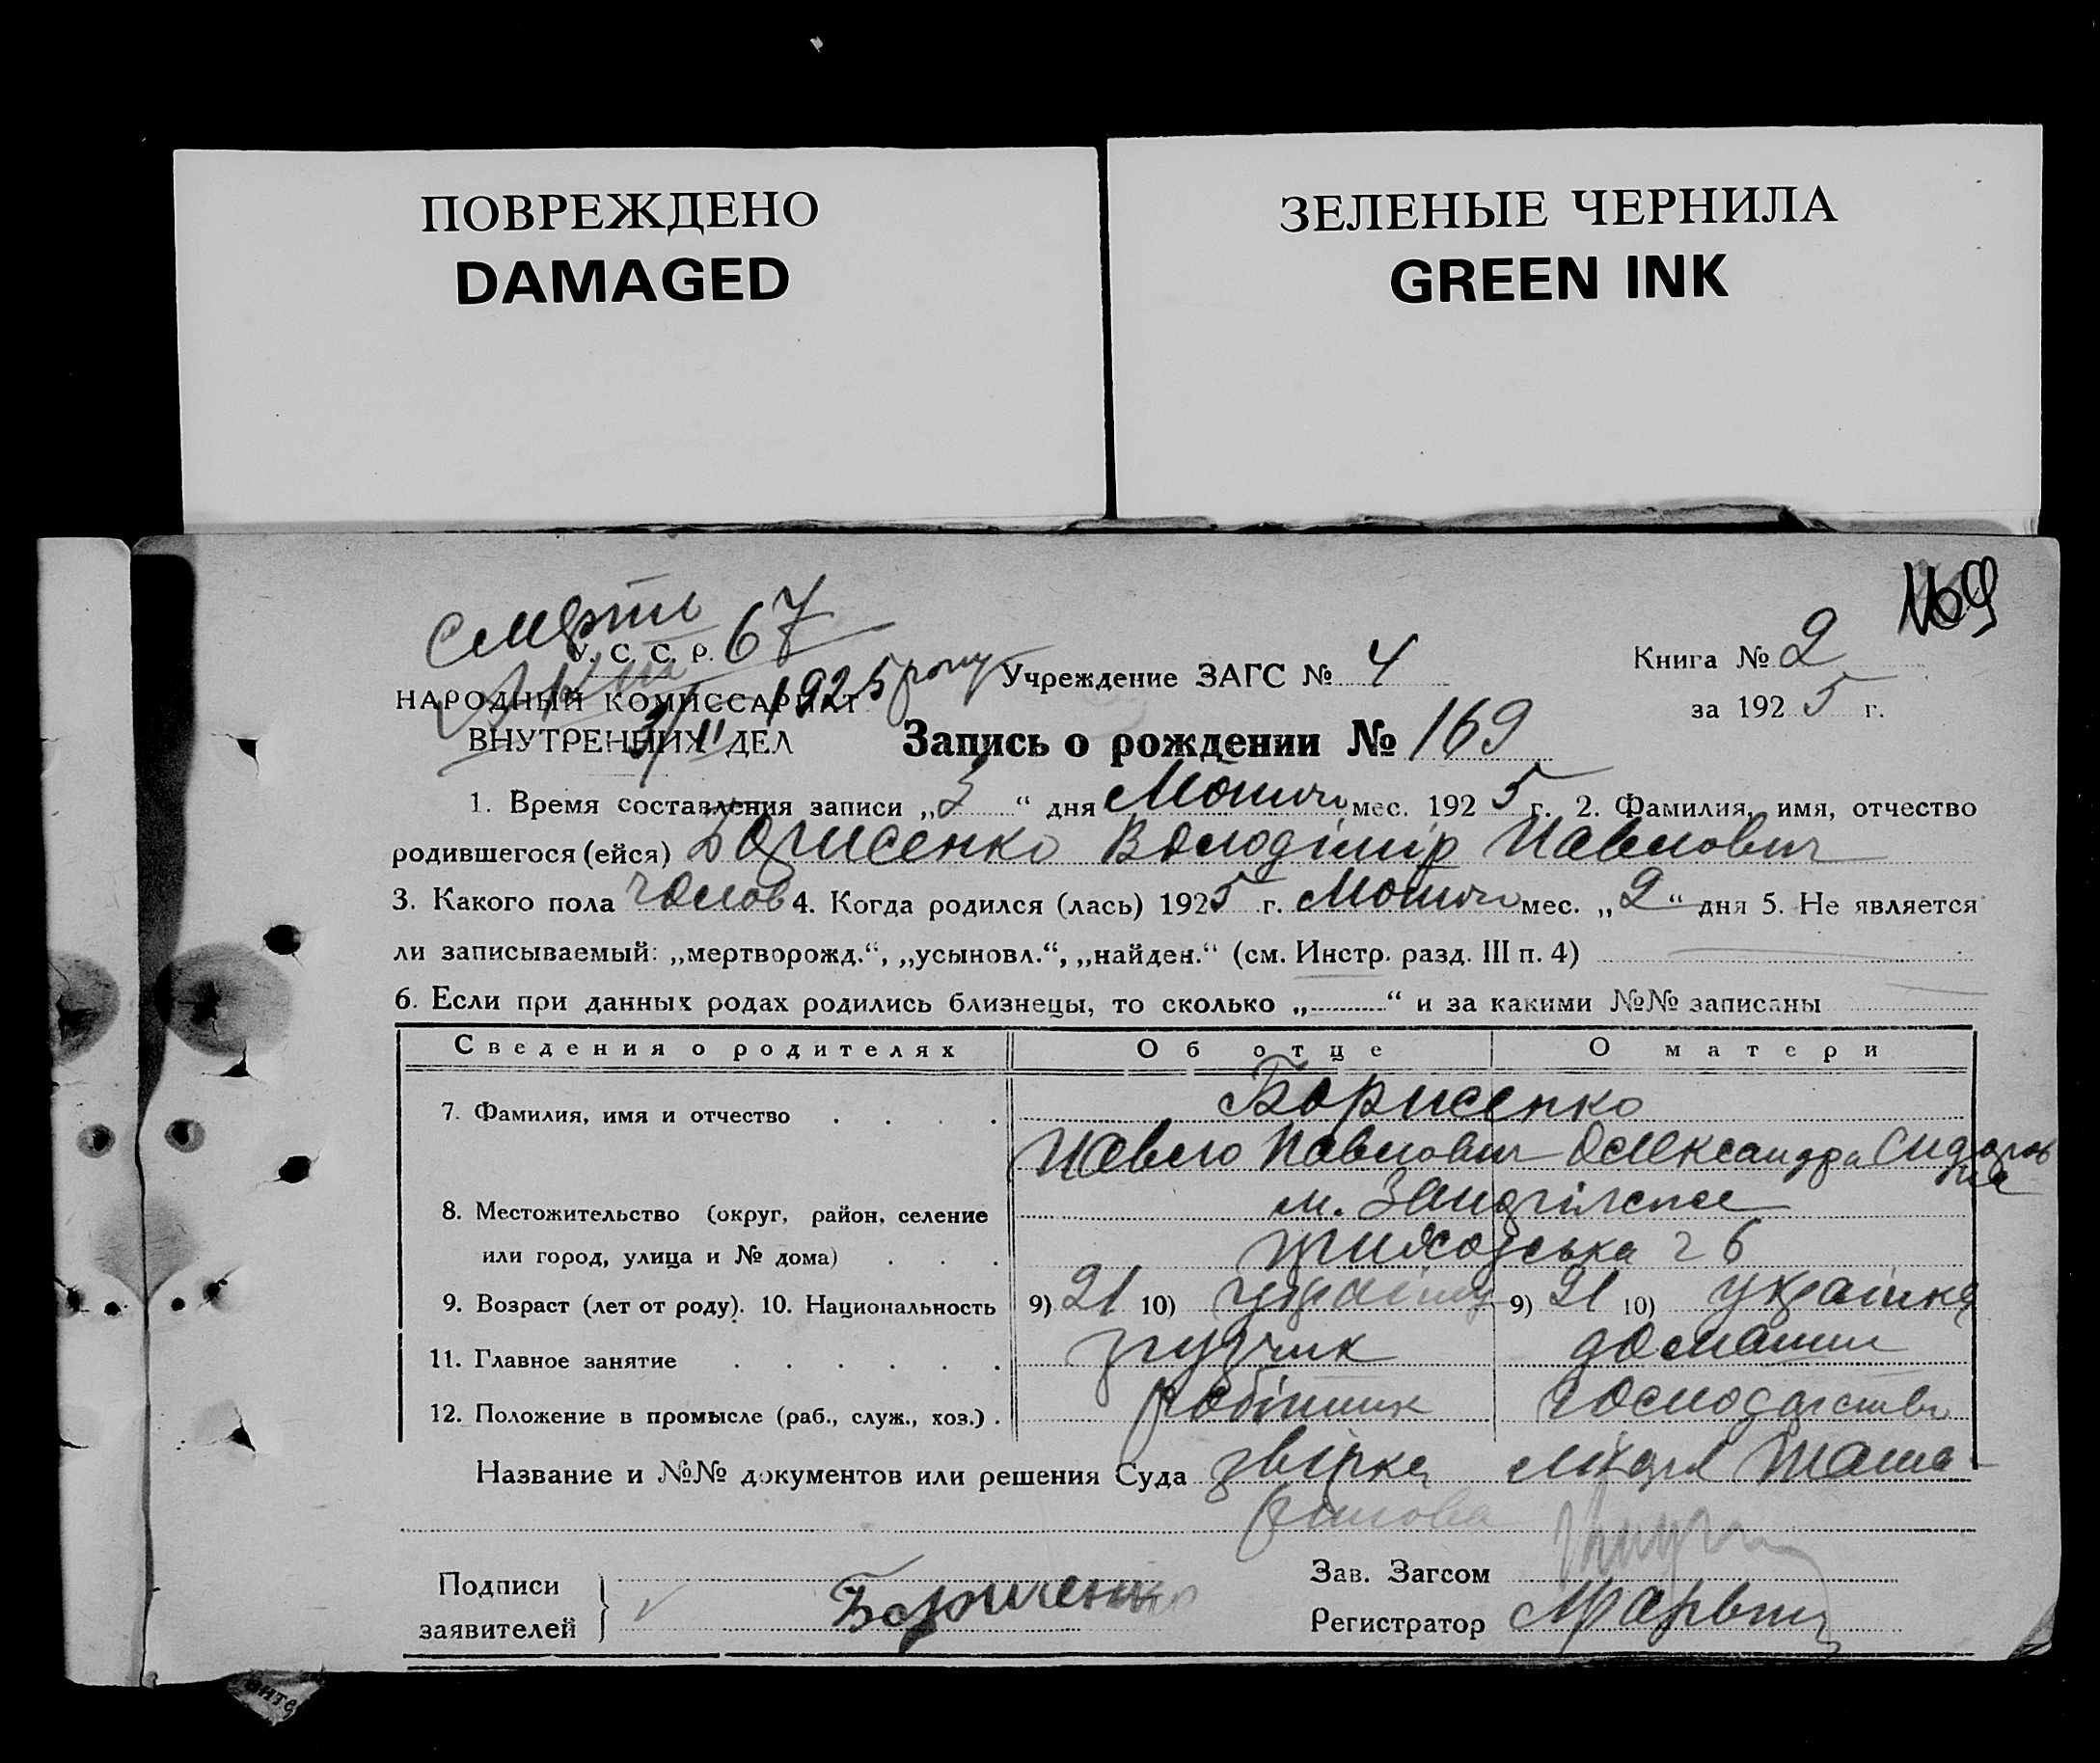 ПОВРЕЖДЕНО
DAMAGED
ЗЕЛЕНЫЕ ЧЕРНИЛА
GREEN INK
169
смерти 67
У. С. С. Р.
1925 року
НАРОДНЫЙ КОМИССАРИАТ
ВНУТРЕННИХ ДЕЛ
3/II
Учреждение ЗАГС № 4
Книга № 2
за 1925 г.
Запись о рождении № 169
1. Время составления записи „3“ дня Лютого мес. 1925 г. 2. Фамилия, имя, отчество
родившегося (ейся) Борисенко Володімір Павлович
3. Какого пола чолов 4. Когда родился (лась) 1925 г. Лютого мес. „2“ дня 5. Не является
ли записываемый: „мертворожд.“, „усыновл.“, „найден.“ (см. Инстр. разд. III п. 4)
6. Если при данных родах родились близнецы, то сколько „ “ и за какими №№ записаны
Сведения о родителях Об отце О матери
7. Фамилия, имя и отчество Борисенко
Павло Павлович Олександра Сидоров
на
8. Местожительство (округ, район, селение м.
или город, улица и № дома) ч 6
9. Возраст (лет от роду). 10. Национальность 9) 21 10) 9) 21 10) українка
11. Главное занятие грузчик домашн
12. Положение в промысле (раб., служ., хоз.) робітник господарство
Название и №№ документов или решения Суда звірка
Подписи
заявителей
Борисенко
Зав. Загсом
Регистратор